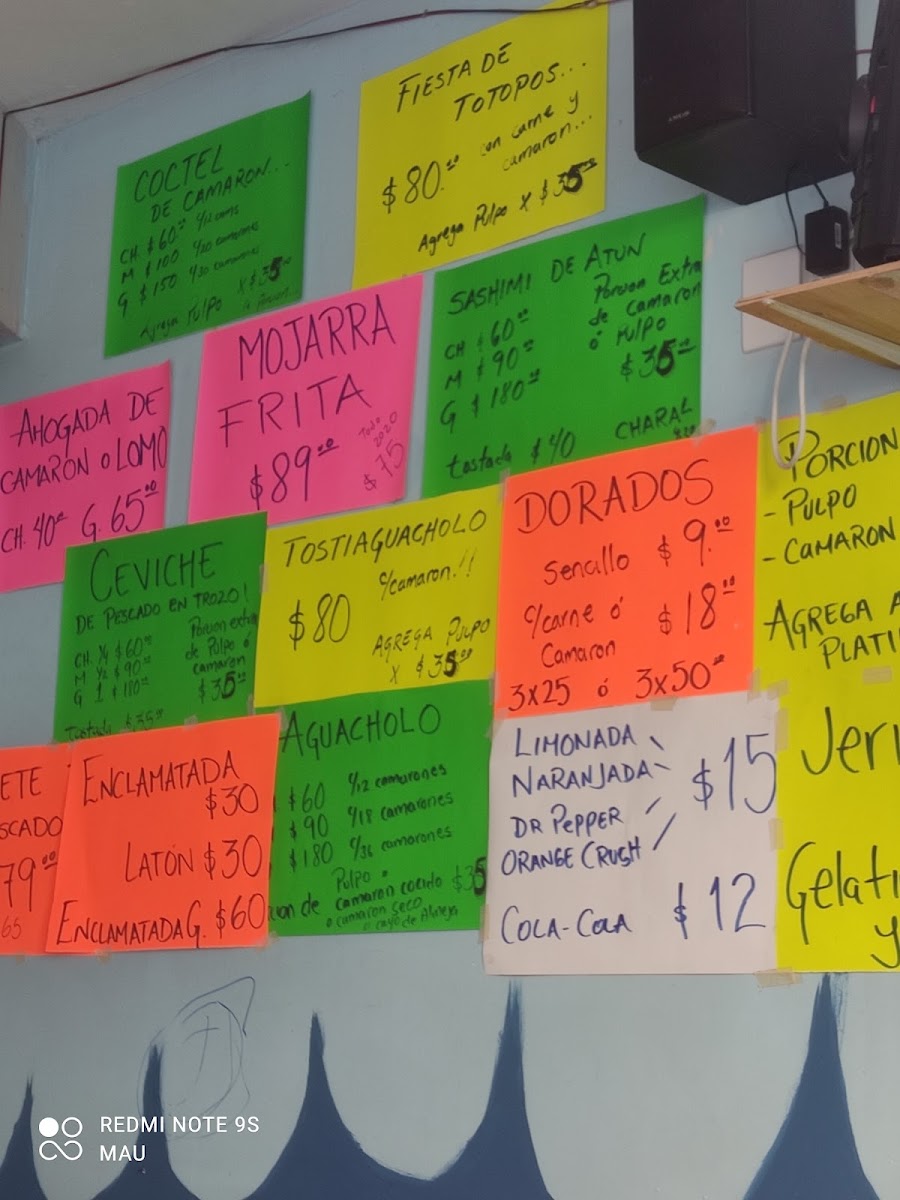 FIESTA DE
TOTOPOS...
$80.00 con carne y
camaron...
Agrega Pulpo X $35.00
COCTEL
DE CAMARON...
CH. $60.00 c/12 cams
M $100 c/20 camarones
G $150 c/30 camarones
Agrega Pulpo X $35
SASHIMI DE ATUN
CH $60.00
M $90.00
G $180.00
Porcion Extra
de camaron
ó Pulpo
$35.00
tostada $40
CHARAL
MOJARRA
FRITA
$89.00
Todo
2020
$75
AHOGADA DE
CAMARON O LOMO
CH. 40.00 G. 65.00
CEVICHE
DE PESCADO EN TROZO!
CH. 1/4 $60.00
M 1/2 $90.00
G 1 $180.00
Porcion extra
de Pulpo ó
camaron
$35.00
Tostada $35.00
TOSTIAGUACHOLO
c/camaron!!
$80
AGREGA PULPO
X $35.00
DORADOS
Sencillo $9.00
c/carne ó
Camaron
$18.00
3x25 ó 3x50.00
PORCION
- PULPO
- CAMARON
AGREGA A
PLATI
Jeri
Gelati
y
ETE
SCADO
79.00
65
ENCLAMATADA
$30
LATÓN $30
ENCLAMATADA G. $60
AGUACHOLO
$60 c/12 camarones
$90 c/18 camarones
$180 c/36 camarones
Pulpo o
ion de camaron cocido $35
o camaron seco
o cayo de Almeja
LIMONADA
NARANJADA
DR PEPPER
ORANGE CRUSH
$15
COLA-COLA $12
REDMI NOTE 9S
MAU